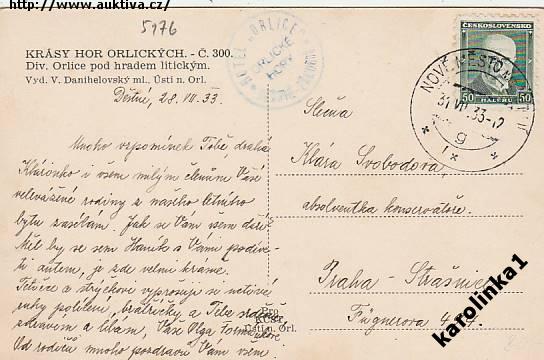 http://www.auktiva.cz/
5976
KRÁSY HOR ORLICKÝCH. - Č. 300.
Div. Orlice pod hradem litickým.
Vyd. V. Danihelovský ml., Ústí n. Orl.
HOTEL ORLICE
ORLICKÉ
HORY
ČESKOSLOVENSKO
50 HALÉŘŮ 50
NOVÉ MĚSTO
31 VII 33-12
g
Deštné, 28. VII. 33.
Mnoho vzpomínek Tobě, drahá
Klárinko i všem milým členům Vaší
velevážené rodiny z našeho letního
bytu zasílám. Jak se Vám všem daří?
Měl by se sem Haník s Vámi podívati
autem, je zde velmi krásně.
Tetičce a strýčkovi vyprošuji se uctivé
ruky políbení, bratříčky a Tebe
zdravím a líbám, Vaše Olga
Od rodičů mnoho pozdravů Vám všem.
KUST
Ústí n. Orl.
Slečna
Klára Svobodová,
absolventka konservatoře.
Praha - Strašnice
Fügnerova 4
karolinka1